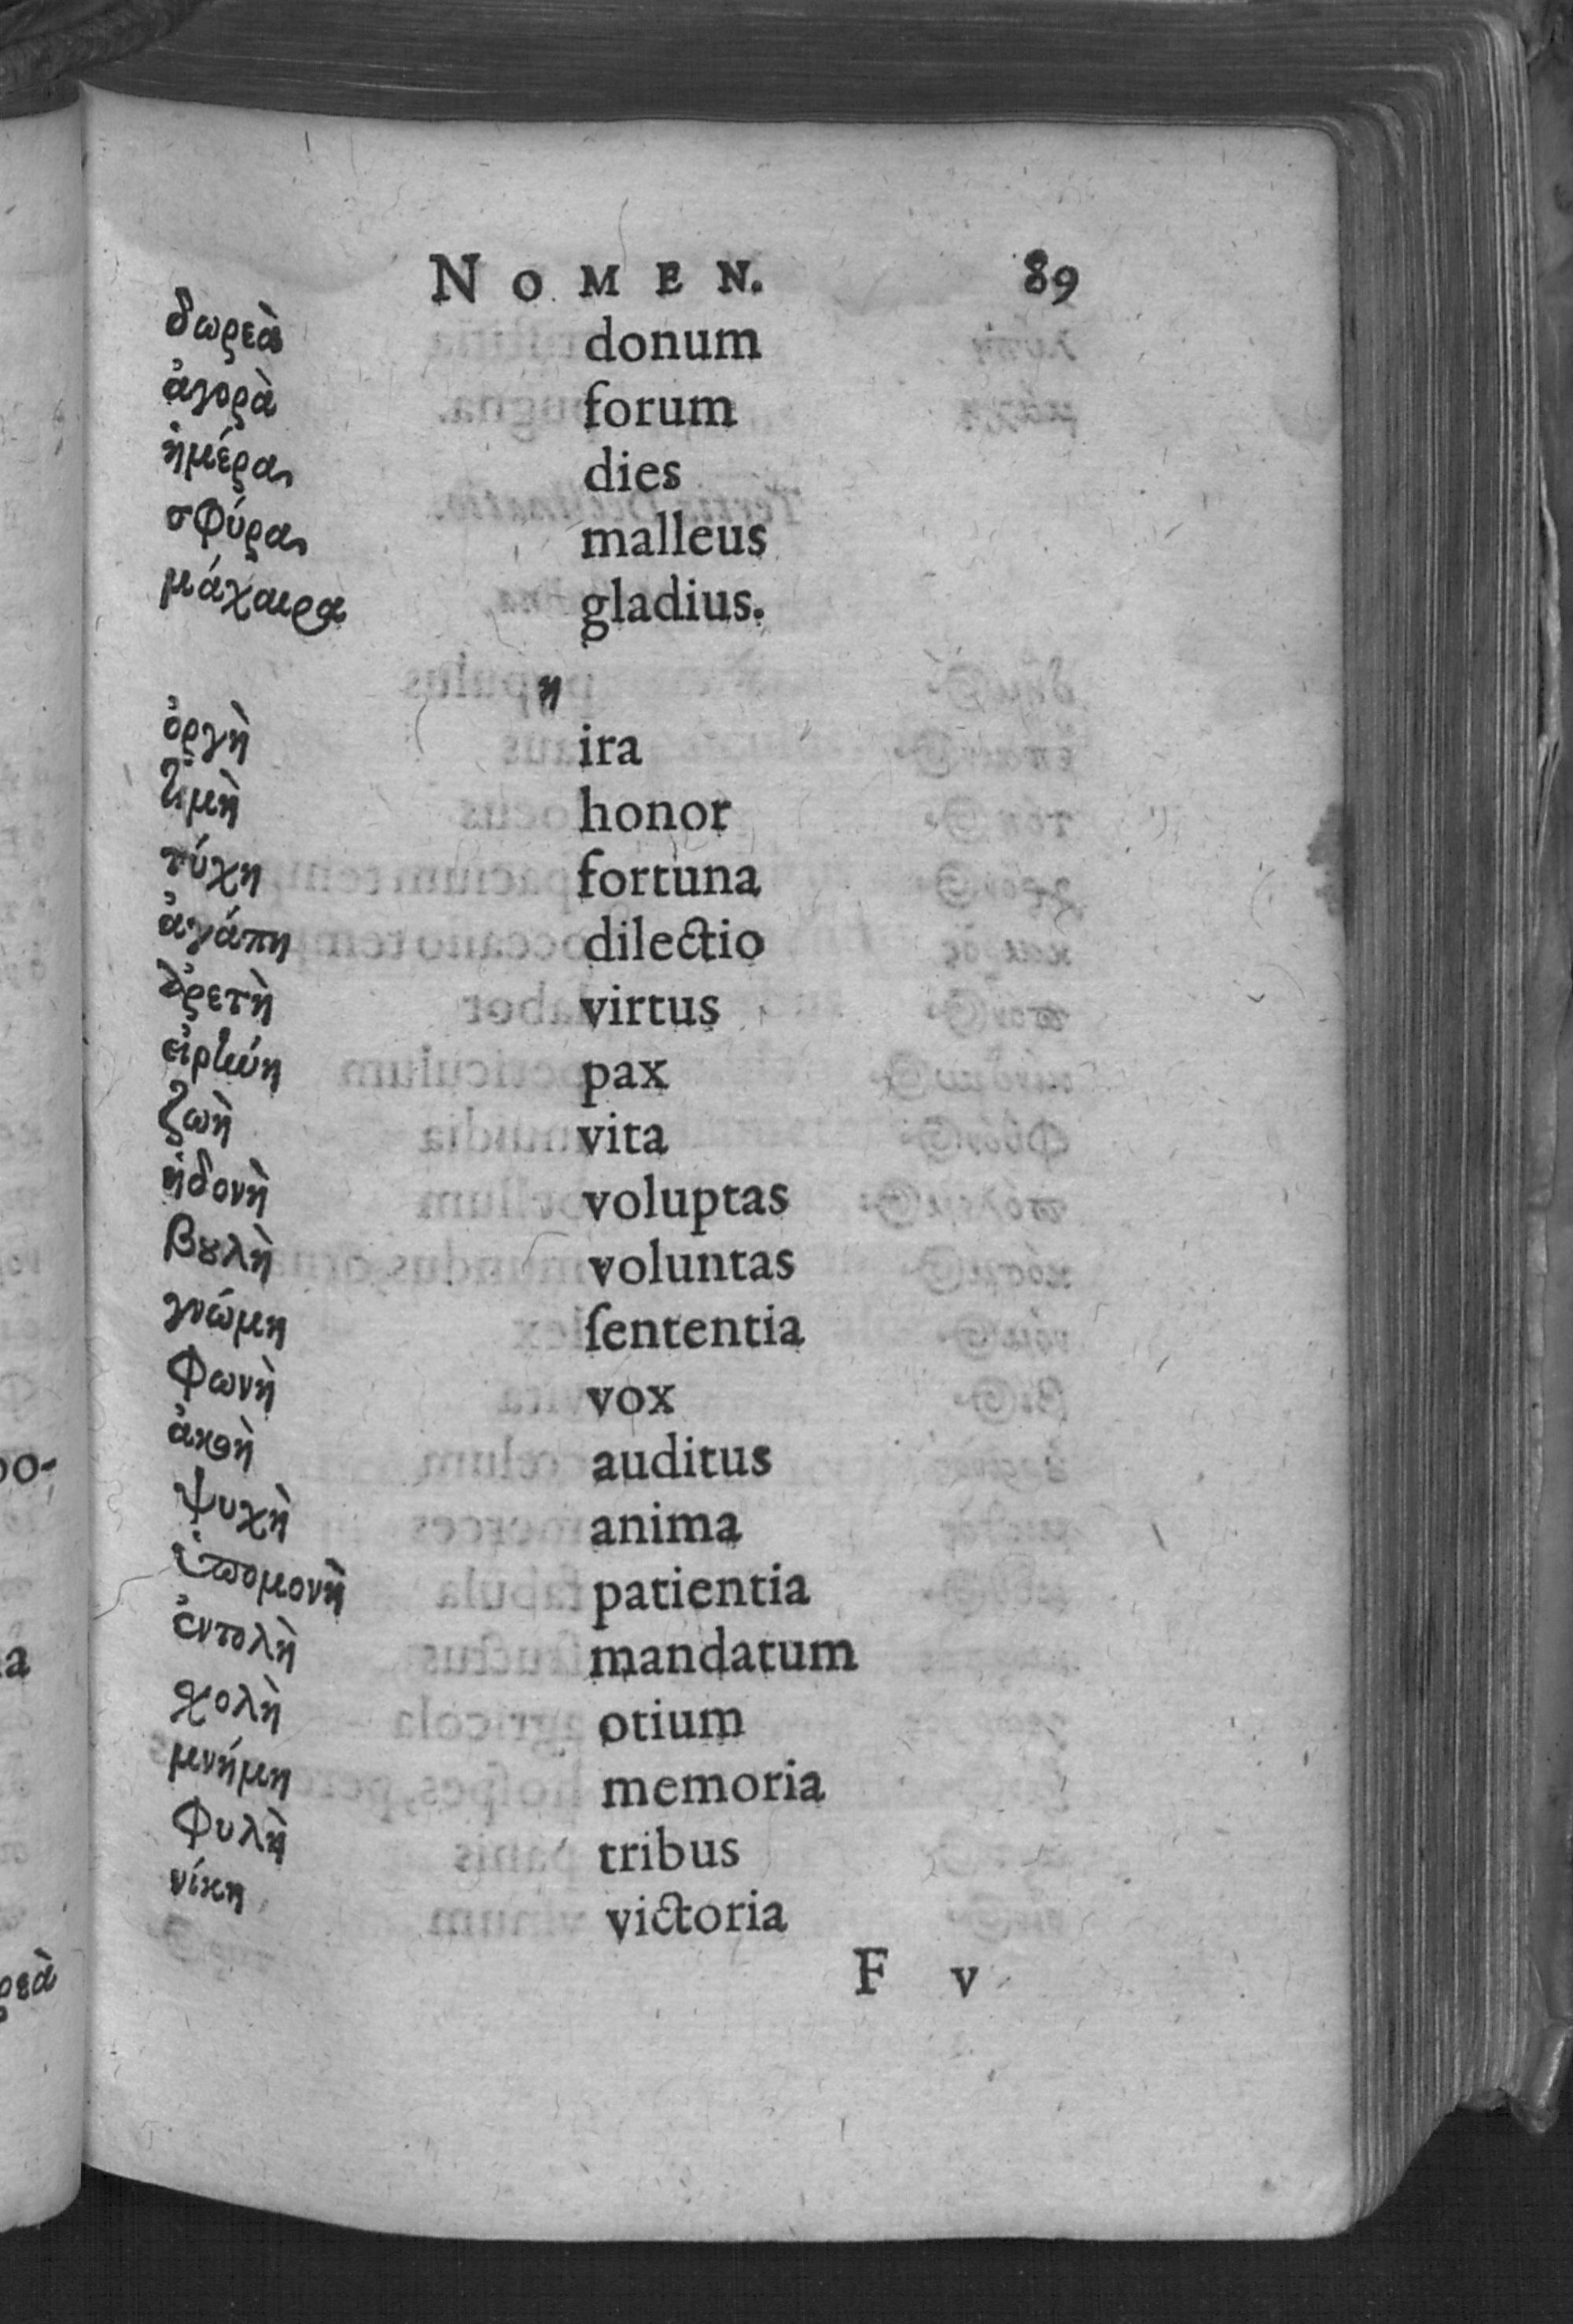 NOMEN. 89
δωρεὰ donum
ἀγορὰ forum
ἡμέρα, dies
σφύρα, malleus
μάχαιρα gladius.
η
ὀργὴ ira
τιμὴ honor
τύχη fortuna
ἀγάπη dilectio
ἀρετὴ virtus
εἰρήνη pax
ζωὴ vita
ἡδονὴ voluptas
βȣλὴ voluntas
γνώμη ſententia
φωνὴ vox
ἀκοὴ auditus
ψυχὴ anima
ὑπομονὴ patientia
ἐντολὴ mandatum
χολὴ otium
μνήμη memoria
φυλὴ tribus
νίκη victoria
F v